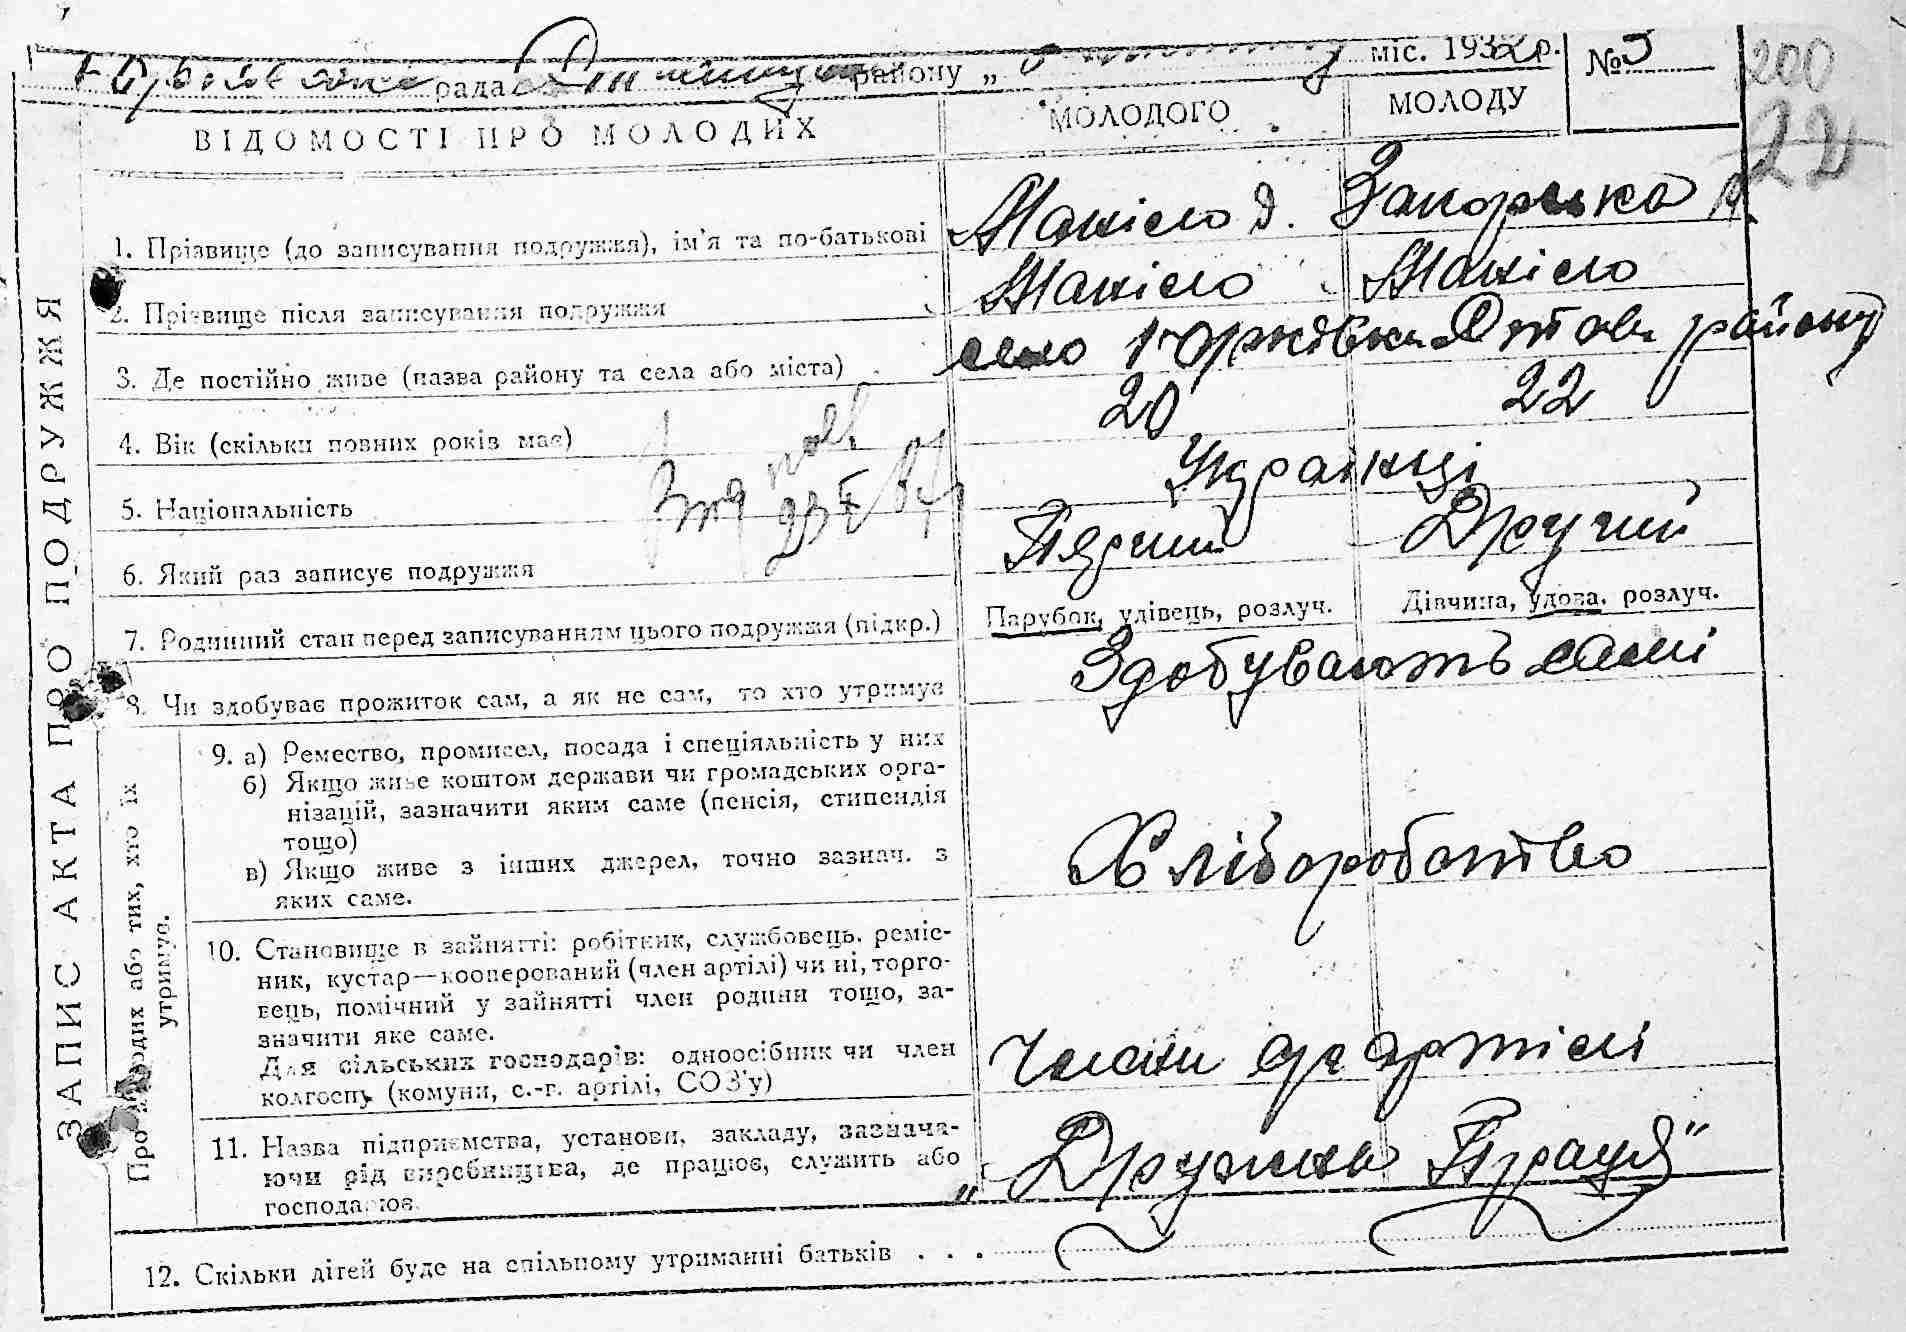 рада району „ міс. 1932 р. №5
200
22
ВІДОМОСТІ ПРО МОЛОДИХ МОЛОДОГО МОЛОДУ
ЗАПИС АКТА ПРО ПОДРУЖЖЯ
1. Прізвище (до записування подружжя), ім'я та по-батькові Манісло Д. Загорська
2. Прізвище після записування подружжя Манісло Манісло
3. Де постійно живе (назва району та села або міста) село Юрківка району
4. Вік (скільки повних років має) 20 22
5. Національність Українці
6. Який раз записує подружжя Перший Другий
7. Родинний стан перед записуванням цього подружжя (підкр.) Парубок, удівець, розлуч. Дівчина, удова, розлуч.
8. Чи здобуває прожиток сам, а як не сам, то хто утримує Здобувають самі
Про молодих або тих, хто їх
утримує.
9. а) Ремество, промисел, посада і спеціяльність у них
б) Якщо живе коштом держави чи громадських орга-
нізацій, зазначити яким саме (пенсія, стипендія
тощо)
в) Якщо живе з інших джерел, точно зазнач. з
яких саме.
Хліборобство
10. Становище в зайнятті: робітник, службовець, реміс-
ник, кустар—кооперований (член артілі) чи ні, торго-
вець, помічний у зайнятті член родини тощо, за-
значити яке саме.
Для сільських господарів: одноосібник чи член
колгоспу (комуни, с.-г. артілі, СОЗ'у)
Члени артілі
11. Назва підприємства, установи, закладу, зазнача-
ючи рід виробництва, де працює, служить або
господарює.
„Дружна Праця"
12. Скільки дітей буде на спільному утриманні батьків . . .